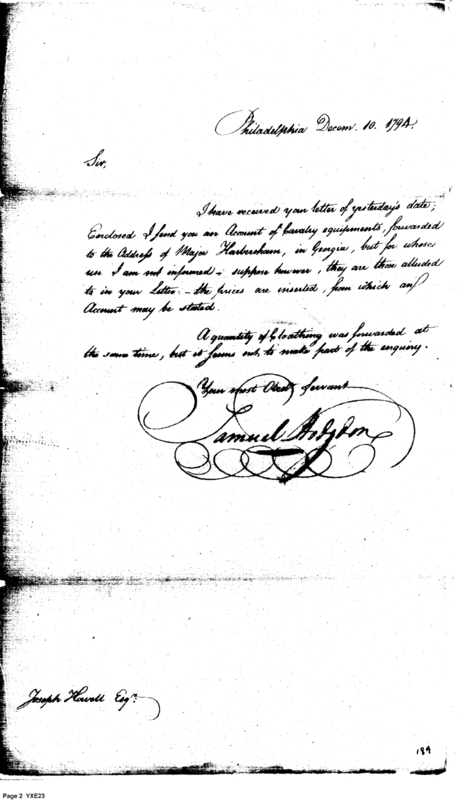 Philadelphia Decem. 10. 1794.
Sir,
I have received your letter of yesterday's date;
Enclosed I send you an Account of Cavalry equipments, forwarded
to the Address of Major Habersham, in Georgia, but for whose
use I am not informed - suppose however, they are those alluded
to in your Letter. - the prices are inserted, from which an
Account may be stated.
A quantity of Cloathing was forwarded at
the same time, but it seems not, to make part of the enquiry.
Your most Obed. Servant
Samuel Hodgdon
Joseph Howell Esqr.
189
Page 2 YXE23